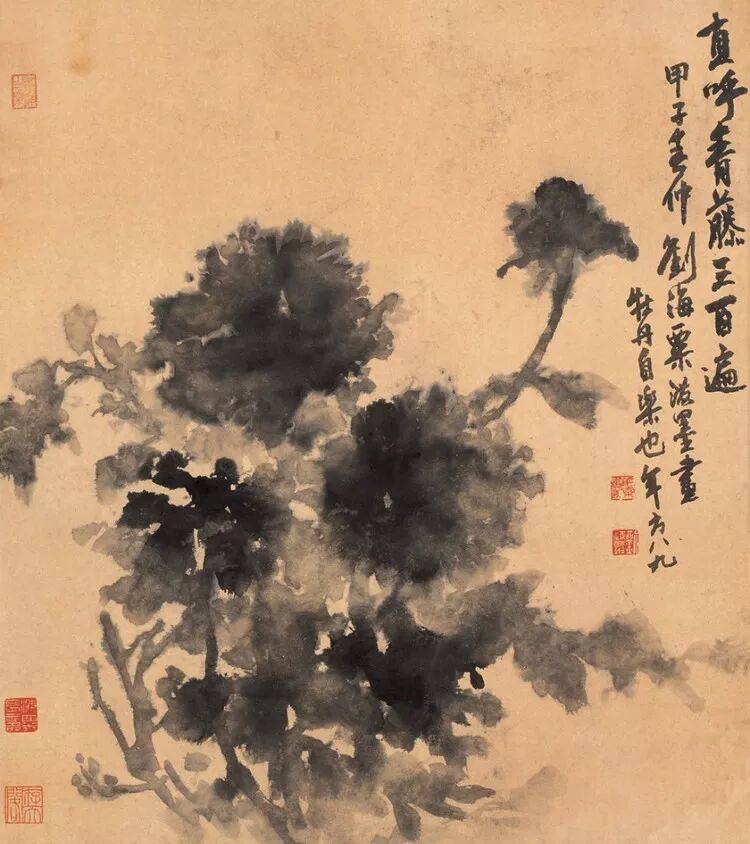 直呼青藤三百遍
甲子春仲劉海粟潑墨畫
牡丹自樂也年方八九